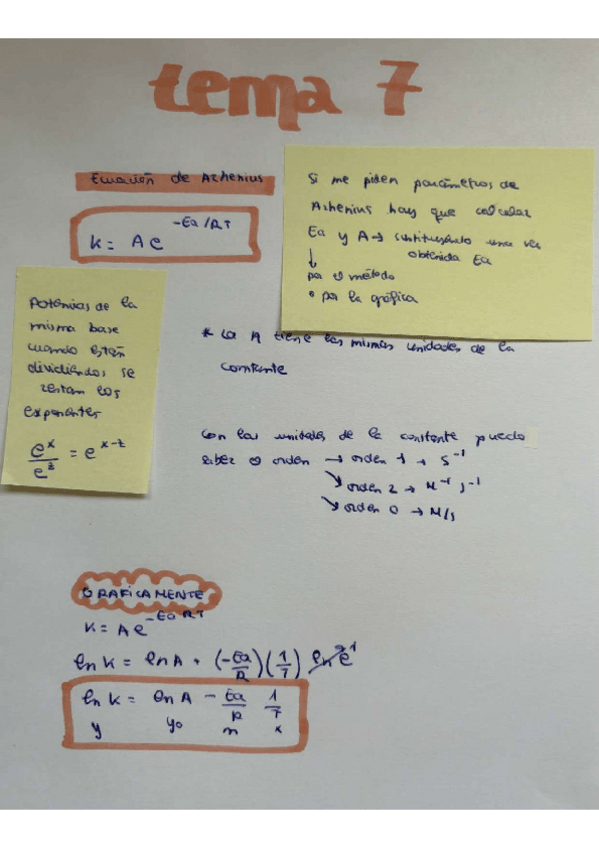 tema 7
Ecuación de Arhenius
K = A e^(-Ea/RT)
Si me piden parámetros de
Arhenius hay que calcular
Ea y A → sustituyendo una vez
obtenida Ea
↓
por el método
• por la gráfica
Potencias de la
misma base
cuando están
dividiendos se
restan los
exponentes
e^x / e^z = e^(x-z)
* La A tiene las mismas unidades de la
constante
Con las unidades de la constante puedo
saber el orden → orden 1 → s^-1
↘ orden 2 → M^-1 s^-1
↘ orden 0 → M/s
GRAFICAMENTE
K = A e^(-Ea RT)
ln K = ln A + (-Ea/R) (1/T) ln e^1
ln K = ln A - Ea/R 1/T
y y0 m x